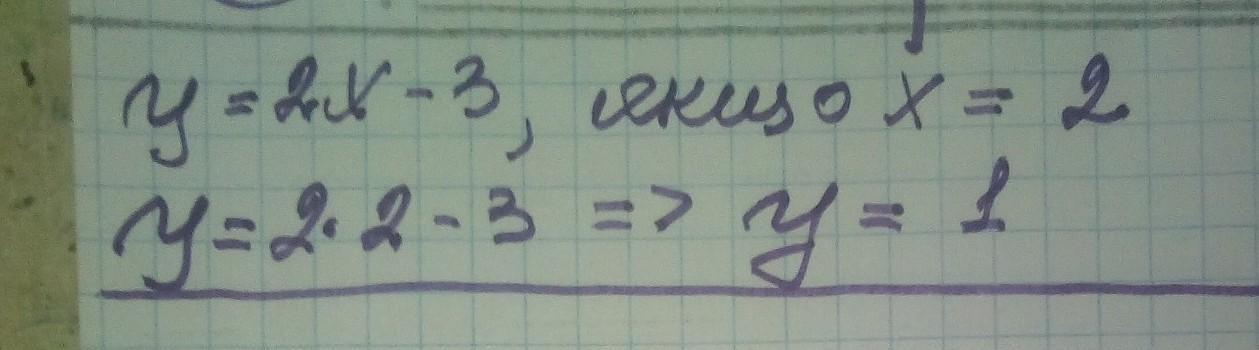 y = 2x - 3, якщо x = 2
y = 2·2 - 3 => y = 1